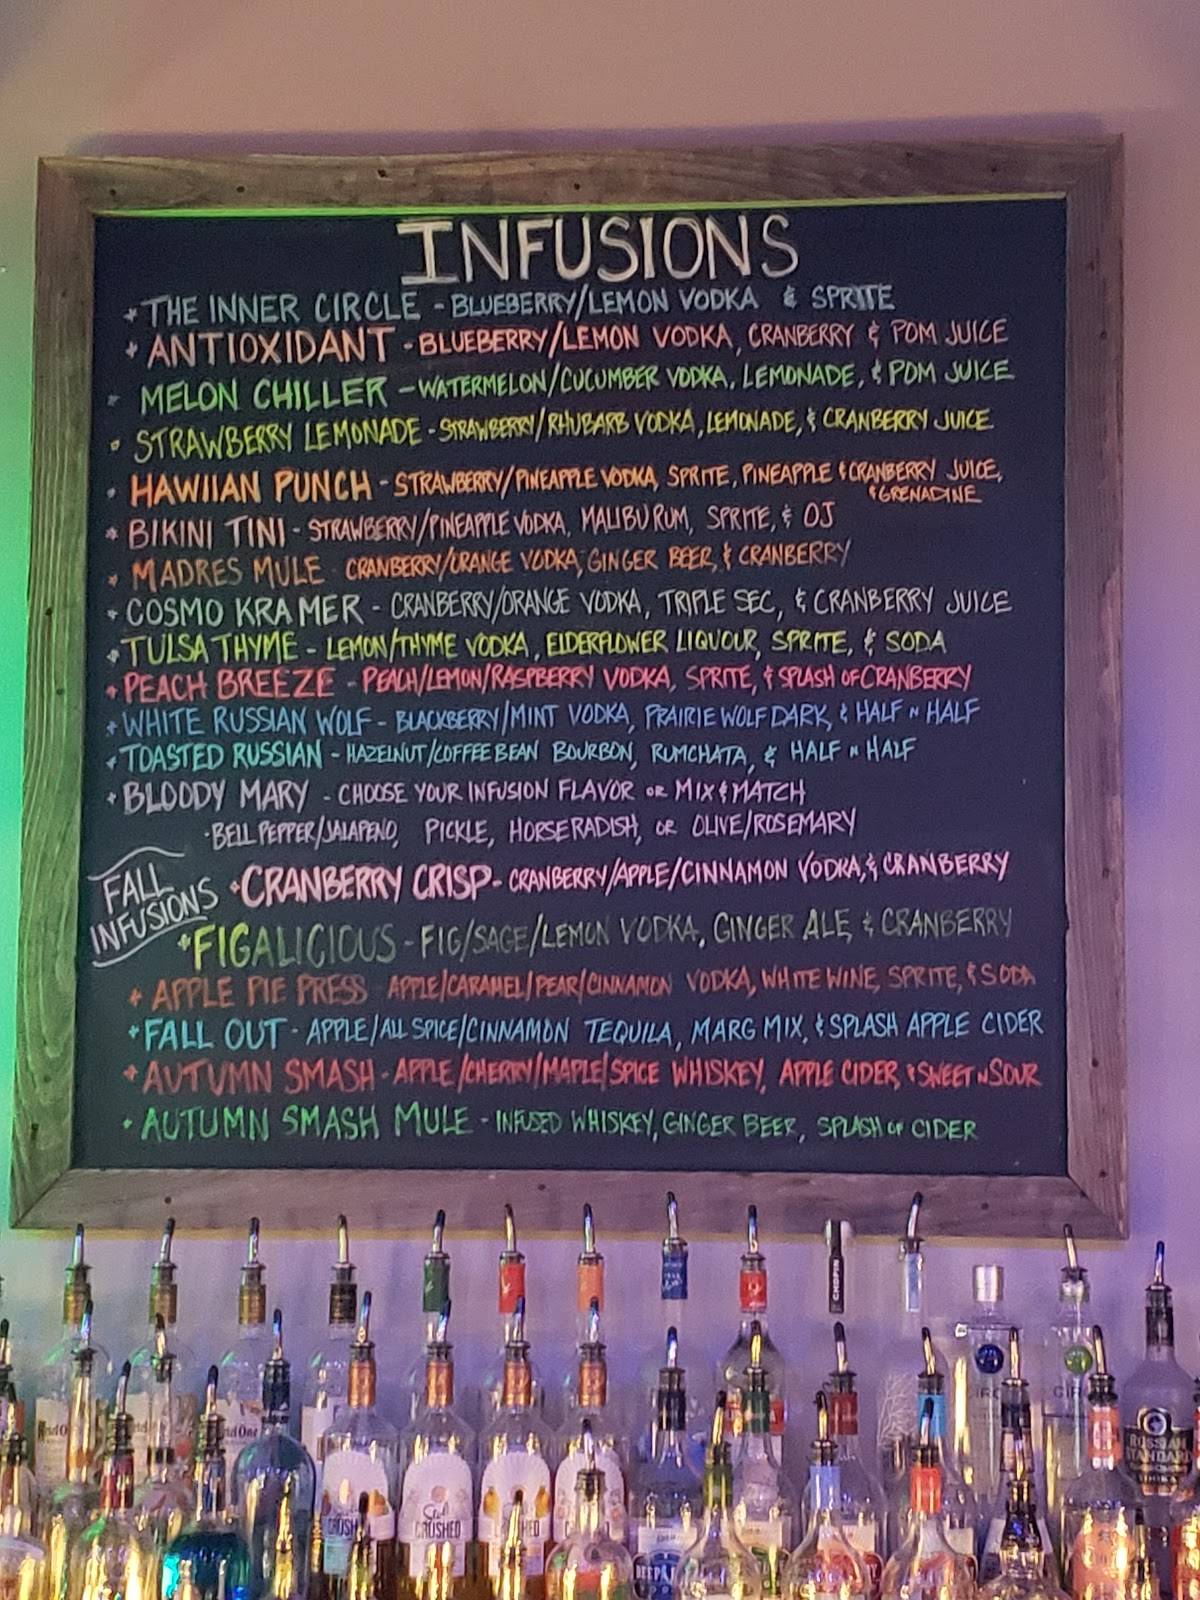 INFUSIONS
* THE INNER CIRCLE - BLUEBERRY/LEMON VODKA & SPRITE
* ANTIOXIDANT - BLUEBERRY/LEMON VODKA, CRANBERRY & POM JUICE
* MELON CHILLER - WATERMELON/CUCUMBER VODKA, LEMONADE, & POM JUICE
* STRAWBERRY LEMONADE - STRAWBERRY/RHUBARB VODKA, LEMONADE, & CRANBERRY JUICE
* HAWIIAN PUNCH - STRAWBERRY/PINEAPPLE VODKA, SPRITE, PINEAPPLE & CRANBERRY JUICE,
& GRENADINE
* BIKINI TINI - STRAWBERRY/PINEAPPLE VODKA, MALIBU RUM, SPRITE, & OJ
* MADRES MULE CRANBERRY/ORANGE VODKA, GINGER BEER, & CRANBERRY
* COSMO KRAMER - CRANBERRY/ORANGE VODKA, TRIPLE SEC, & CRANBERRY JUICE
* TULSA THYME - LEMON/THYME VODKA, ELDERFLOWER LIQUOUR, SPRITE, & SODA
* PEACH BREEZE - PEACH/LEMON/RASPBERRY VODKA, SPRITE, & SPLASH OF CRANBERRY
* WHITE RUSSIAN WOLF - BLACKBERRY/MINT VODKA, PRAIRIE WOLF DARK, & HALF N HALF
* TOASTED RUSSIAN - HAZELNUT/COFFEE BEAN BOURBON, RUMCHATA, & HALF N HALF
* BLOODY MARY - CHOOSE YOUR INFUSION FLAVOR OR MIX & MATCH
· BELL PEPPER/JALAPENO, PICKLE, HORSERADISH, OR OLIVE/ROSEMARY
FALL
INFUSIONS
* CRANBERRY CRISP - CRANBERRY/APPLE/CINNAMON VODKA, & CRANBERRY
* FIGALICIOUS - FIG/SAGE/LEMON VODKA, GINGER ALE, & CRANBERRY
* APPLE PIE PRESS APPLE/CARAMEL/PEAR/CINNAMON VODKA, WHITE WINE, SPRITE, & SODA
* FALL OUT - APPLE/ALL SPICE/CINNAMON TEQUILA, MARG MIX, & SPLASH APPLE CIDER
* AUTUMN SMASH - APPLE/CHERRY/MAPLE/SPICE WHISKEY, APPLE CIDER, & SWEET N SOUR
* AUTUMN SMASH MULE - INFUSED WHISKEY, GINGER BEER, SPLASH OF CIDER
CHOPIN
CRUSHED
RUSSIAN
STANDARD